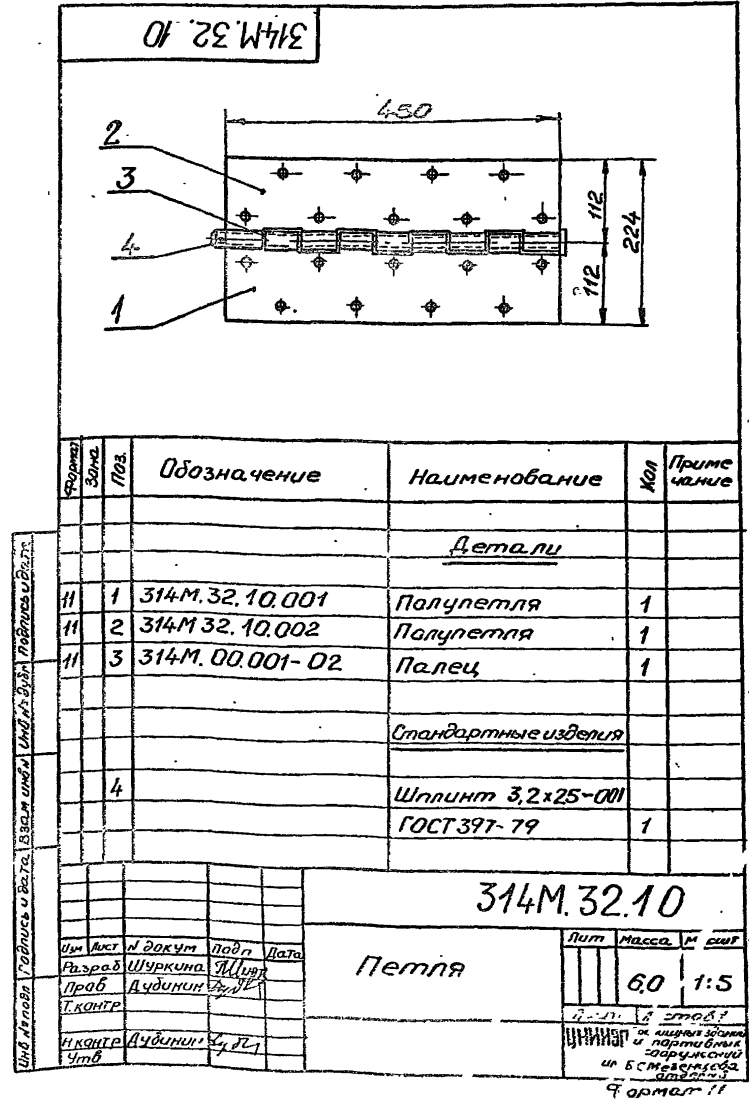 314М.32.10
450
2
3
4
1
112
112
224
Формат Зона Поз. Обозначение Наименование Кол Приме
чание
Детали
11 1 314М.32.10.001 Полупетля 1
11 2 314М 32.10.002 Полупетля 1
11 3 314М.00.001-02 Палец 1
Стандартные изделия
4 Шплинт 3,2х25-001
ГОСТ 397-79 1
Подпись и дата
Инв № дубл
Взам инв №
Подпись и дата
Инв № подл
314М.32.10
Изм Лист № докум Подп Дата
Разраб Шуркина
Пров Дудинин
Т.контр
Н контр Дудинин
Утв
Петля
Лит Масса
6,0 1:5
ЦНИИЭП
и спортивных
сооружений
им Б С Мезенцева
Формат 11